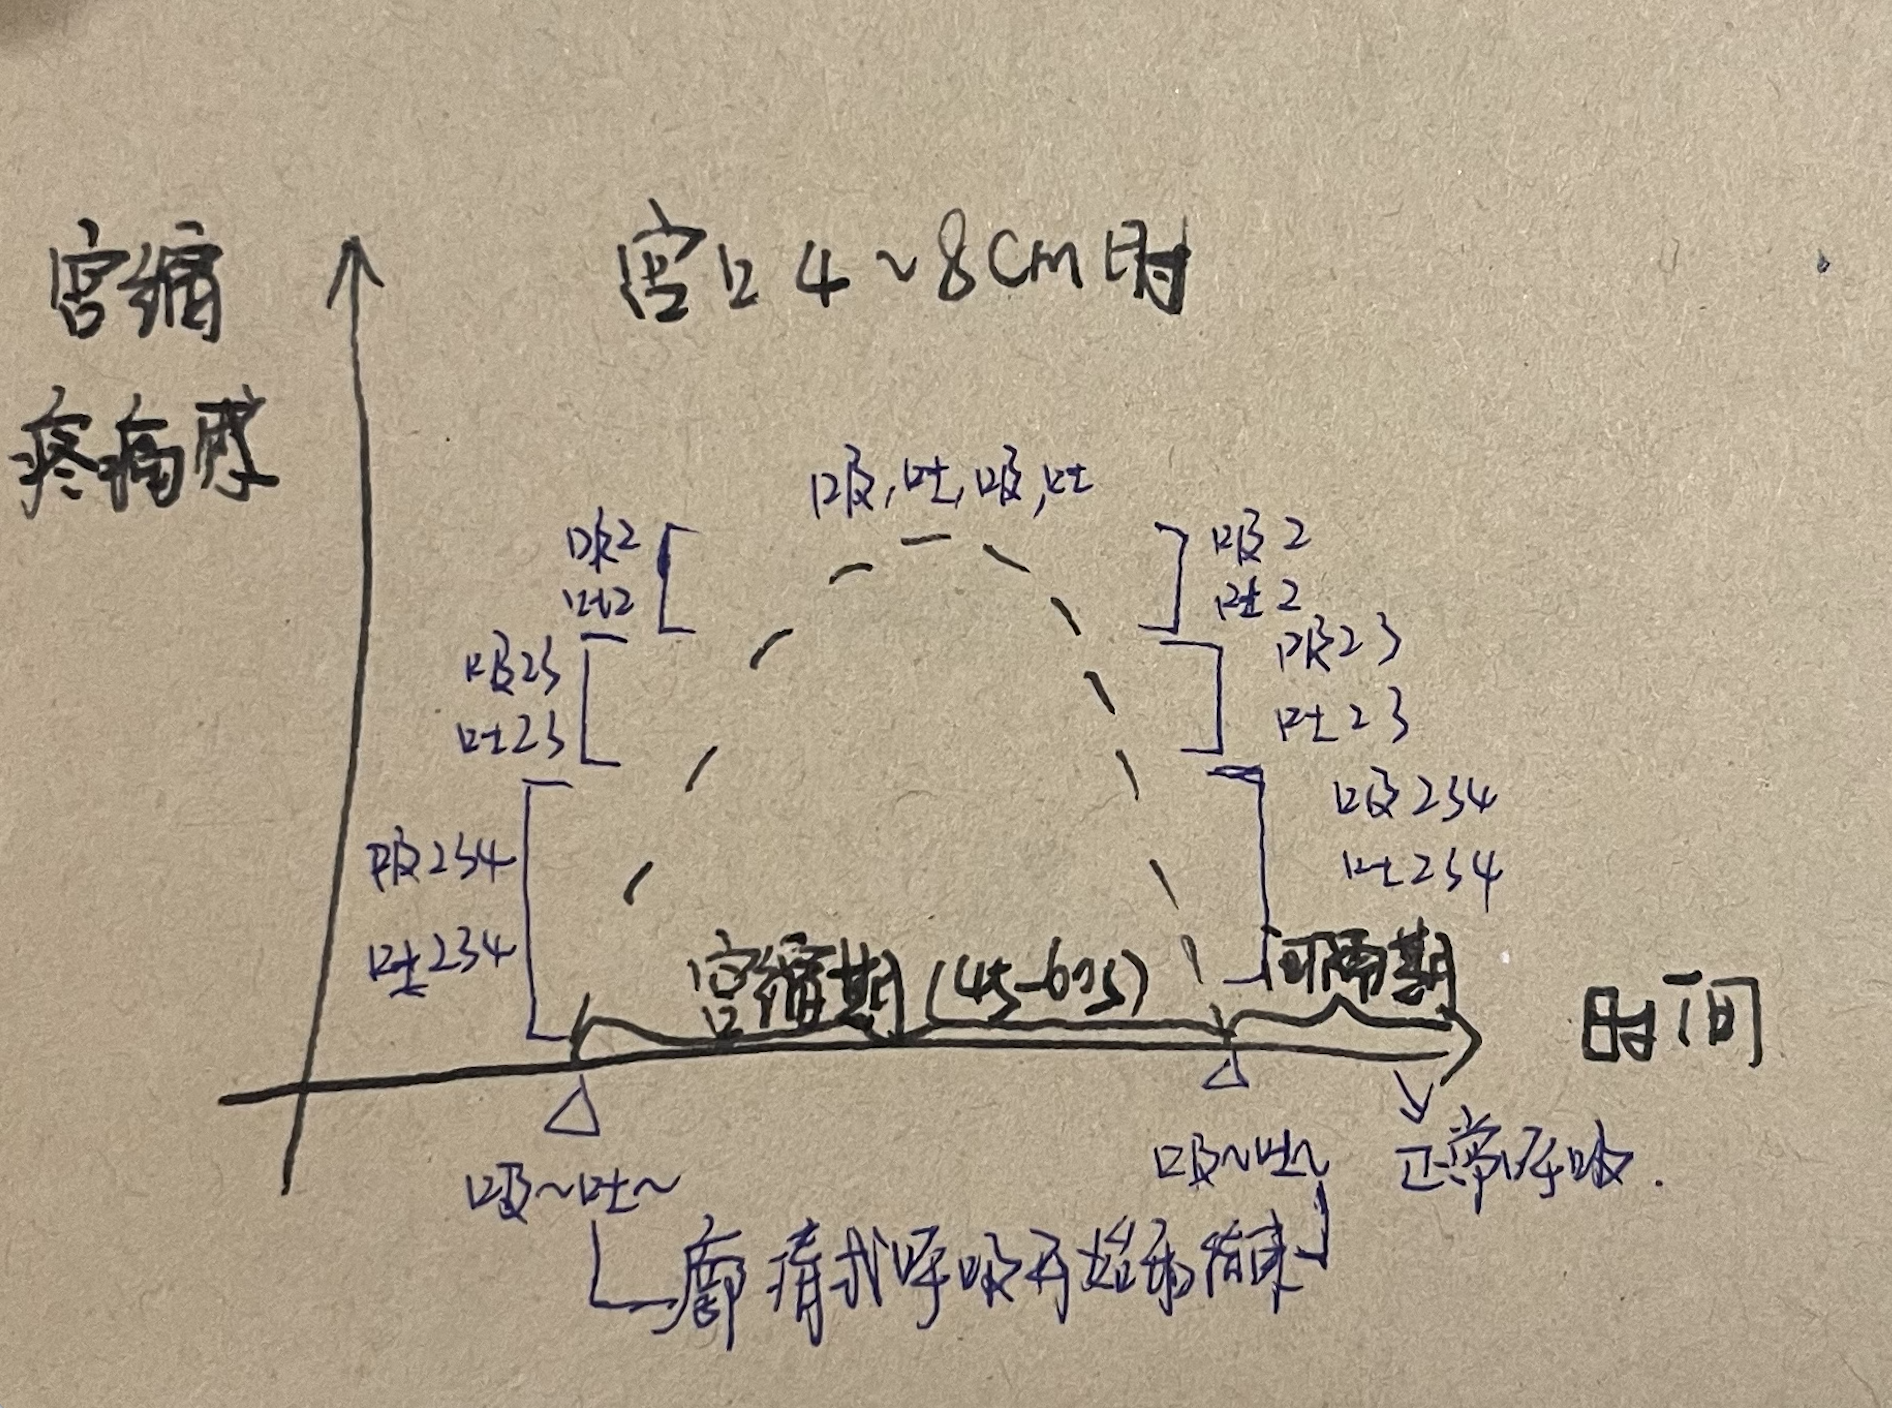 宫缩
疼痛度
宫口4~8cm时
吸,吐,吸,吐
吸2
吐2
吸23
吐23
吸234
吐234
吸2
吐2
吸23
吐23
吸234
吐234
宫缩期(45-60s)
间隔期
时间
吸~吐~
吸~吐~
正常呼吸.
廓清式呼吸开始和结束